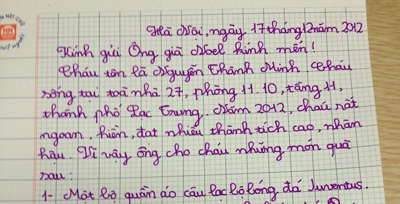 Hà Nội, ngày 17 tháng 12 năm 2012
Kính gửi Ông già Noel kính mến!
Cháu tên là Nguyễn Thành Minh. Cháu
sống tại toà nhà 27, phòng 11.10, tầng 11,
thành phố Lạc Trung. Năm 2012, cháu rất
ngoan, hiền, đạt nhiều thành tích cao, nhân
hậu. Vì vậy ông cho cháu những món quà
sau:
1- Một bộ quần áo câu lạc bộ bóng, đá Juventus.